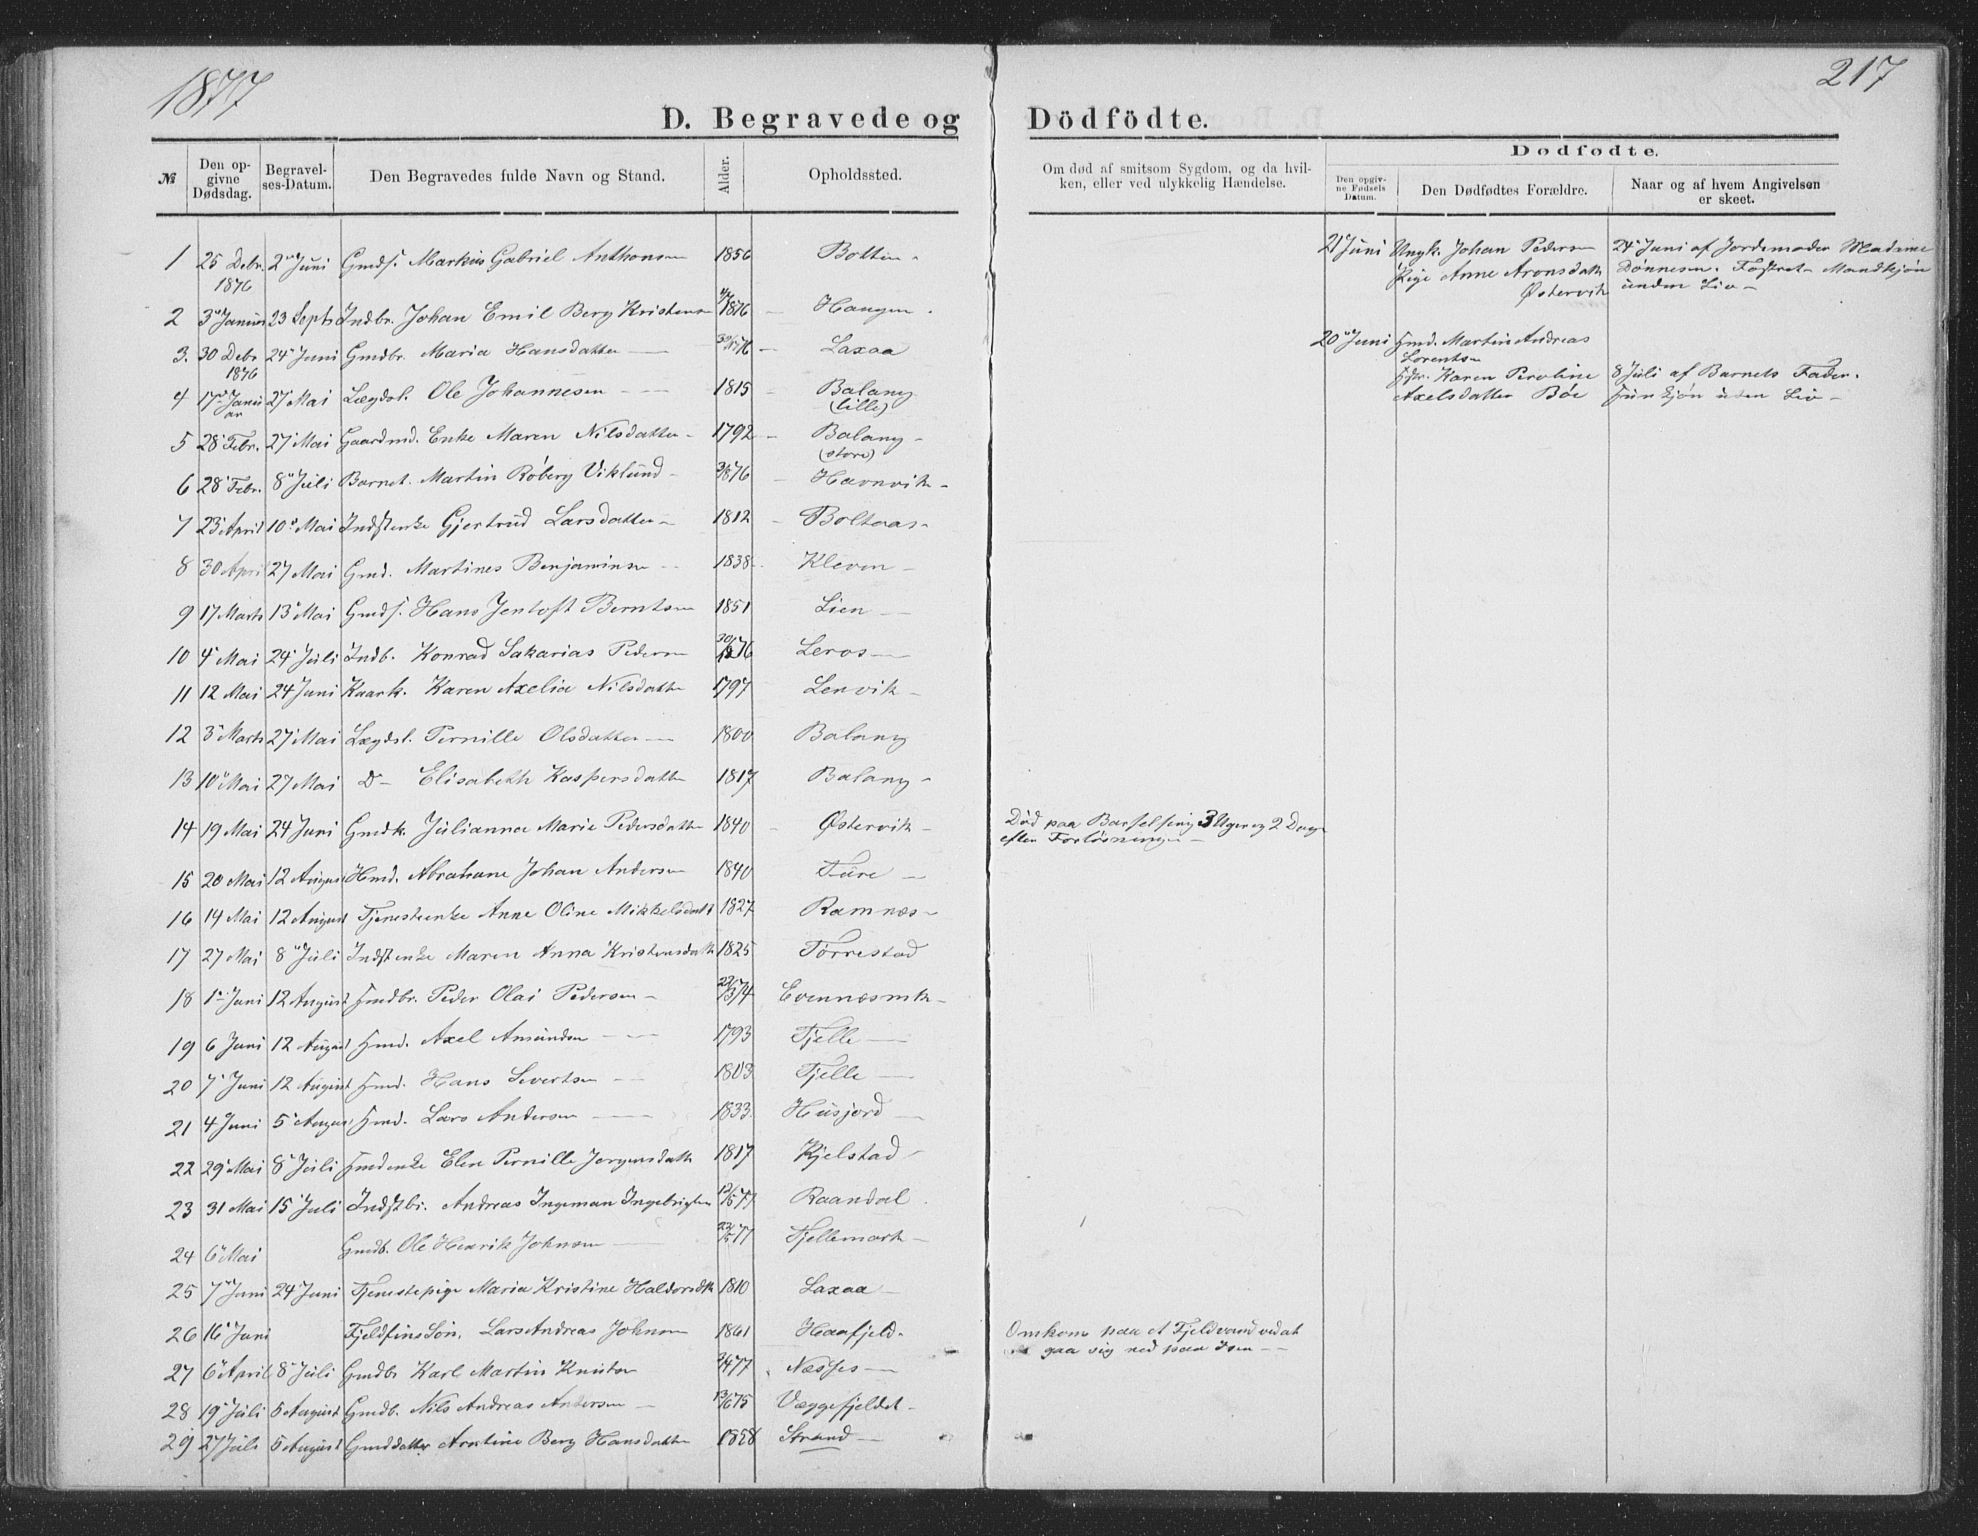 1877
217
D. Begravede og Dödfödte.
№
Den opgivne Dødsdag.
Begravelses-Datum.
Den Begravedes fulde Navn og Stand.
Alder.
Opholdssted.
Om død af smitsom Sygdom, og da hvilken, eller ved ulykkelig Hændelse.
Dødfødte.
Den opgivne Fødsels Datum.
Den Dødfødtes Forældre.
Naar og af hvem Angivelsen er skeet.
1 25 Debr. 1876 2 Juni Gmds. Markus Gabriel Anthonsen 1856
2 3 Januar 23 Septb Indbr. Johan Emil Berg Kristensen 1876 Haugen
3. 30 Debr 1876 24 Juni Gmdbr. Maria Hansdatter 76 Laxaa
4 17 Januar 27 Mai Lægdsl. Ole Johannesen 1815 Balang (lille)
5 28 Febr. 27 Mai Gaardmd. Enke Maren Nilsdatter 1792 Balang (store)
6 28 Febr. 8 Juli Barnet Martin Röberg Viklund 76 Havnvik
7 23 April 10 Mai Indstenke Gjertrud Larsdatter 1812 Boltaas
8 30 April 27 Mai Gmd. Martines Benjaminsen 1838 Kleven
9 17 Marts 13 Mai Gmds. Hans Jentoft Berntsen 1851 Lien
10 4 Mai 24 Juli Indb. Konrad Sakarias Pedersen 76 Leros
11 12 Mai 24 Juni Kaark. Karen Axelia Nilsdatter 1797 Lenvik
12 3 Marts 27 Mai Lægdsl. Pernille Olsdatter 1800 Balang
13 10 Mai 27 Mai D– Elisabeth Kaspersdatter 1817 Balang
14 19 Mai 24 Juni Gmdk. Julianna Marie Pedersdatter 1840 Østervik Död paa Barselseng 3 Uger og 2 Dage efter Forløsningen
15 20 Mai 12 August Hmd. Abrahane Johan Andersen 1840
16 14 Mai 12 August Tjenesteenke Anne Oline Mikkelsdatt 1827 Ramnæs
17 27 Mai 8 Juli Indstenke Maren Anna Kristensdatt 1825 Torrestad
18 1 Juni 12 August Hmdbr. Peder Olai Pedersen 74 Evennæsmk
19 6 Juni 12 August Hmd. Axel Amundsen 1793 Fjelle
20 7 Juni 12 August Hmd. Hans Sivertsen 1803 Fjelle
21 4 Juni 5 August Hmd. Lars Andersen 1833 Husjord
22 29 Mai 8 Juli Hmdenke Elen Pernille Jørgensdatt 1817 Kjelstad
23 31 Mai 15 Juli Indstbr. Andreas Ingeman Ingebrigtsen 12/5 77 Raandal
24 6 Mai Gmdb. Ole Henrik Johnsen 77 Fjellemark
25 7 Juni 24 Juni Tjenestepige Maria Kristine Haldorsdtr 1810 Laxaa
26 16 Juni Fjeldfins Søn, Lars Andreas Johnsen 1861 Haafjeld Omkom paa et Fjeldvand ved at gaa sig ned paa Isen
27 6 April 8 Juli Gmdbr Karl Martin Knutsen 77 Næsses
28 19 Juli 5 August Gmdb. Nils Andreas Andersen 13/6 75 Væggefjeldet
29 27 Juli 5 August Gmddatter Arntine Berg Hansdatter 1858 Strand
21 Juni Ungk. Johan Pedersen Pige Anne Aronsdatt Østervik
24 Juni af Jordemoder Madame Dönnesen. Fostret Mandkjön uden Liv
20 Juni Hmd. Martin Andreas Lorentsen Hstr. Karen Peroline Axelsdatter Böe
8 Juli af Barnets Fader. Hunkjön uden Liv